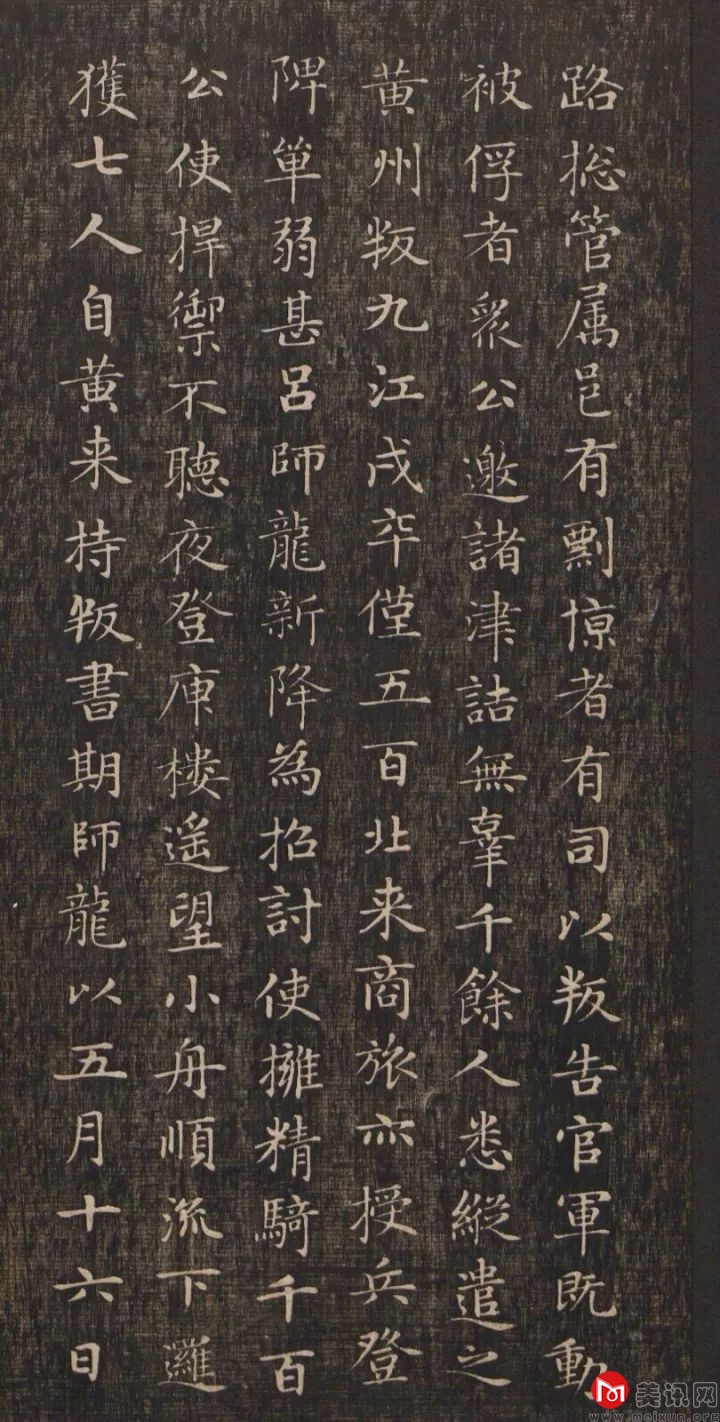 路揔管属邑有剽掠者有司以叛告官軍既動
被俘者衆公邀諸津詰無辜千餘人悉縱遣之
黄州叛九江戍卒僅五百北来商旅亦授兵登
陴單弱甚吕師龍新降為招討使擁精騎千百
公使捍禦不聽夜登庾楼遥望小舟順流下邏
獲七人自黄来持叛書期師龍以五月十六日
美讯网
www.meixun.org